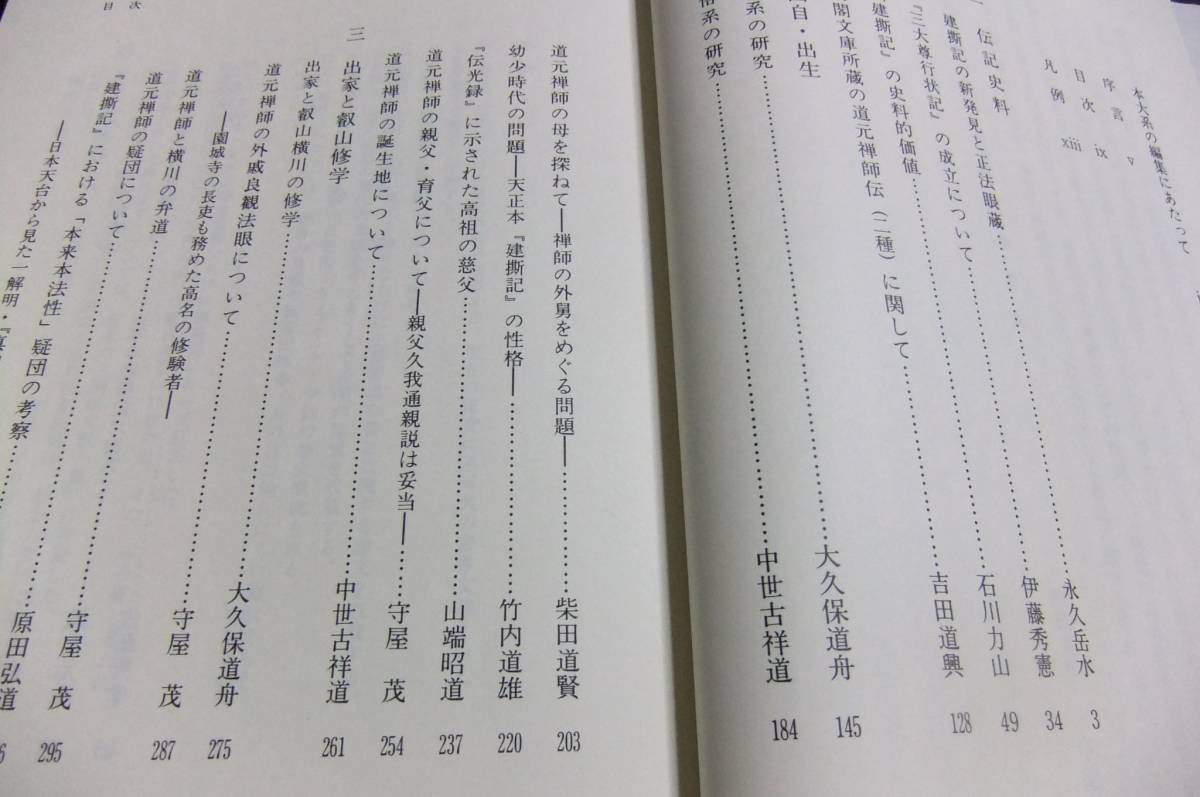 本大系の編集にあたって
序言 v
目次 ix
凡例 xiii
伝記史料
建撕記の新発見と正法眼蔵……………永久岳水 3
『三大尊行状記』の成立について……………伊藤秀憲 34
建撕記』の史料的価値……………石川力山 49
閣文庫所蔵の道元禅師伝（二種）に関して……………吉田道興 128
自・出生
系の研究……………大久保道舟 145
系の研究……………中世古祥道 184
道元禅師の母を探ねて――禅師の外舅をめぐる問題――……………柴田道賢 203
幼少時代の問題――天正本『建撕記』の性格――……………竹内道雄 220
『伝光録』に示された高祖の慈父……………山端昭道 237
道元禅師の親父・育父について――親父久我通親説は妥当――……守屋 茂 254
道元禅師の誕生地について……………中世古祥道 261
三 出家と叡山修学
出家と叡山横川の修学……………大久保道舟 275
道元禅師の外戚良観法眼について……………守屋 茂 287
――園城寺の長吏も務めた高名の修験者――
道元禅師と横川の弁道……………守屋 茂 295
道元禅師の疑団について……………原田弘道 6
『建撕記』における「本来本法性」疑団の考察……
――日本天台から見た一解明・『真
目次